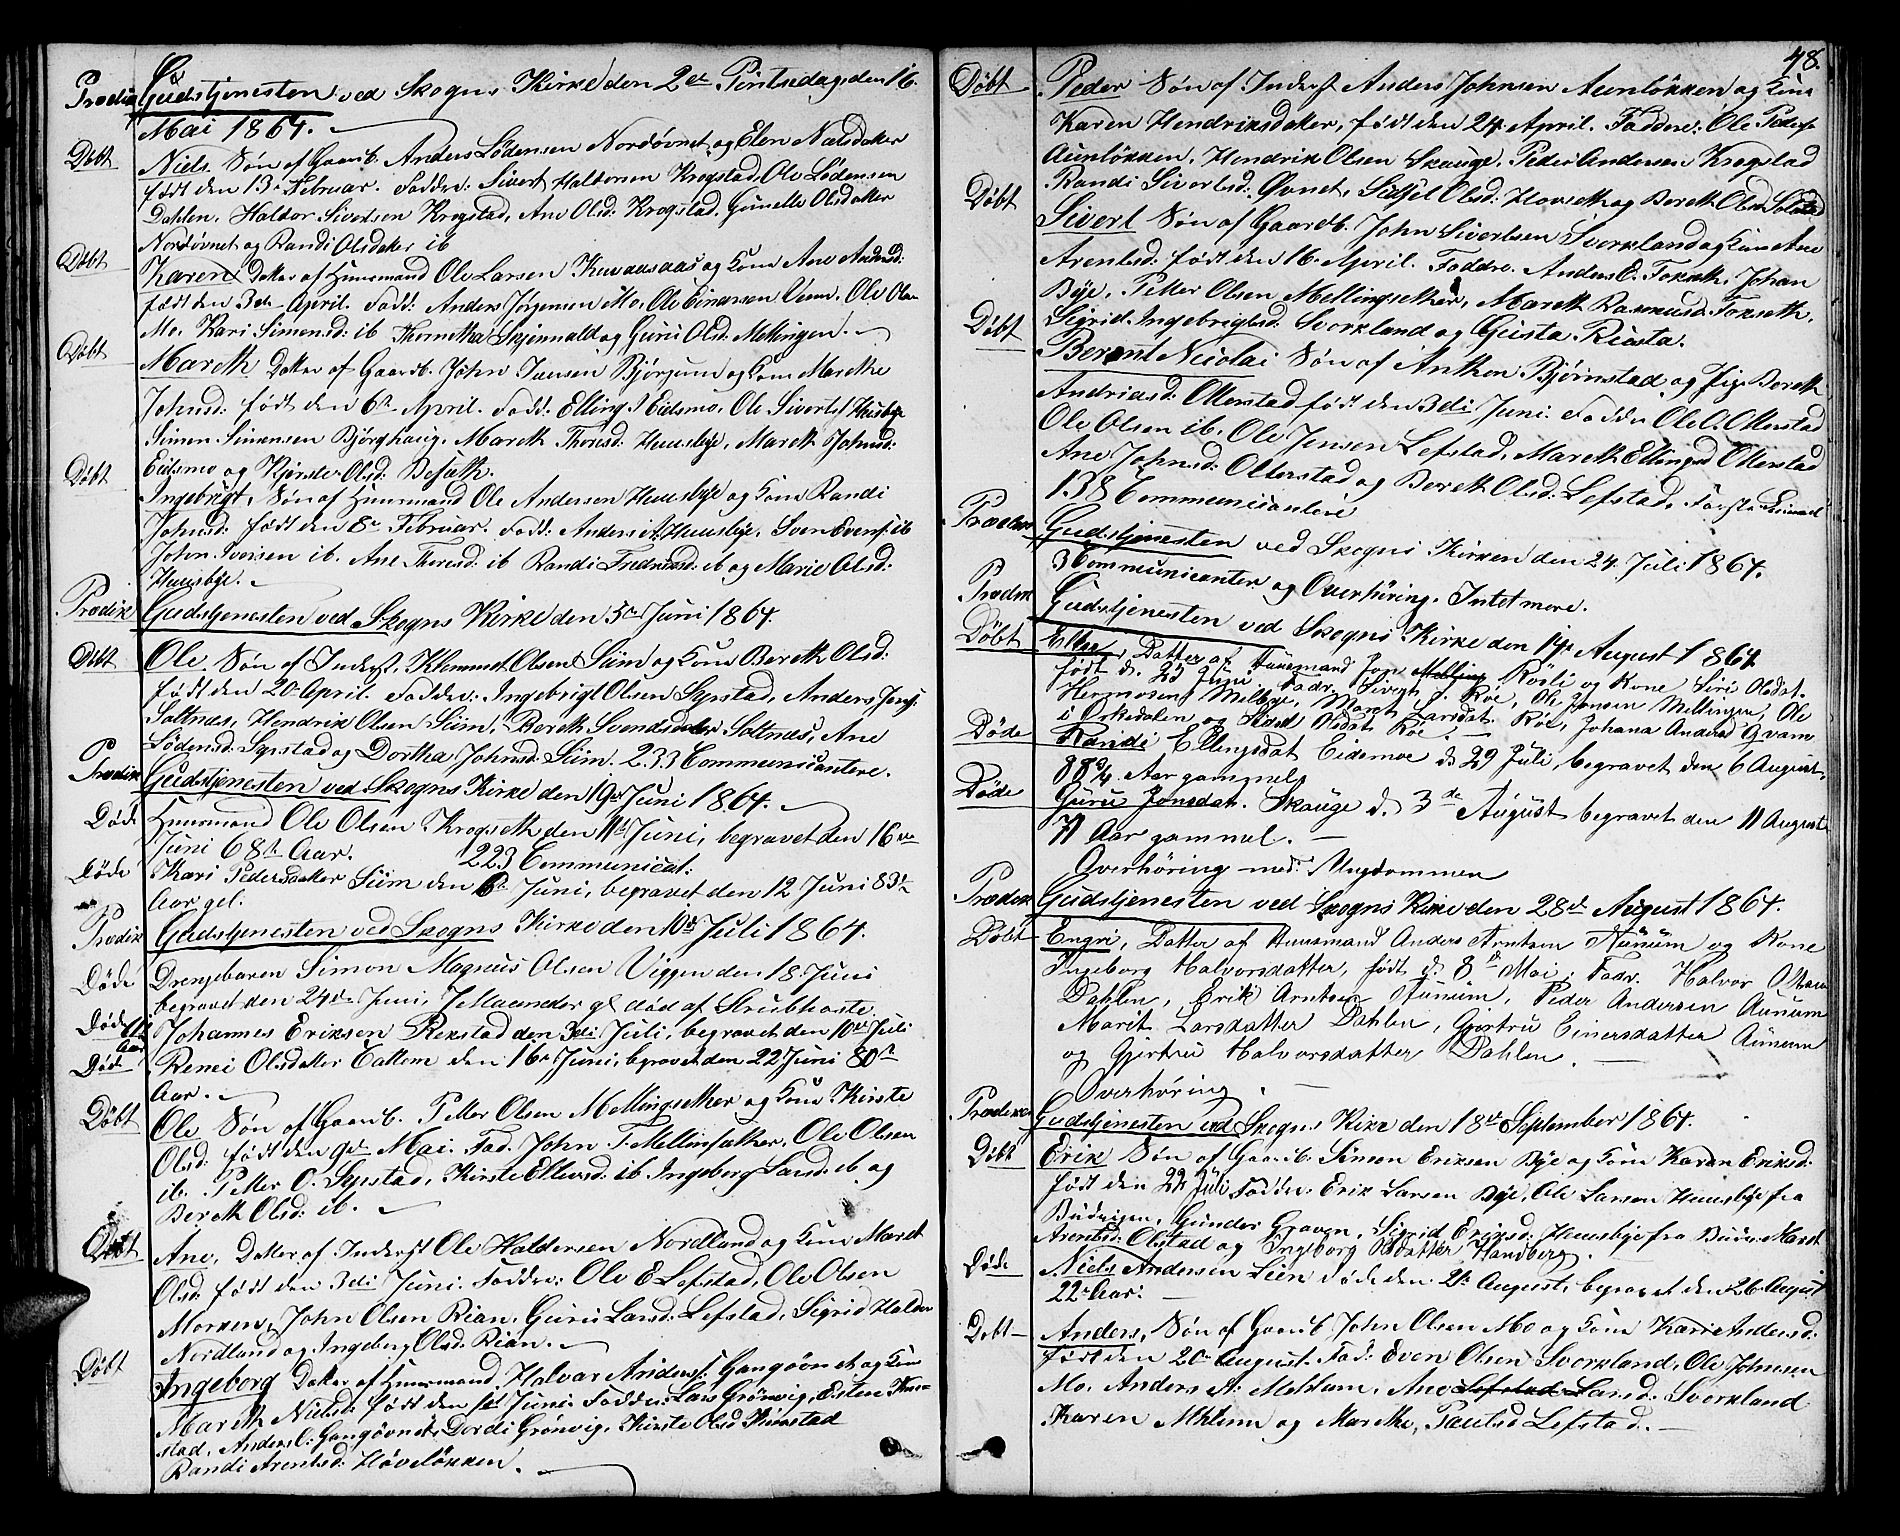 Prædik Gudstjenesten ved Skogns Kirke den 2den Pintsedag den 16.
Mai 1864.
Døbt Niels Søn af Gaardb. Anders Lødensen Nordøvnet og Elen Nielsdatter
født den 13e Februar. Faddre: Sivert Haldorsen Krogstad, Ole Lødensen
Dahlen, Haldor Sivertsen Krogstad, Ane Olsd: Krogstad, Gunelle Olsdatter
Nordøvnet og Randi Olsdatter ib
Døbt Karen Datter af Huusmand Ole Larsen og Kone Ane
født den 3di April. Fadd: Anders Jørgensen Mo, Ole Einersen Ven, Ole Olsen
Mo, Kari Simensd: ib Skjenald og Guru Olsd: Mellingen.
Døbt Mareth Datter af Gaardb. John Jensen Bjørgum og Kone Marethe
Johnsd: født den 6te April. Fadd: Elling I Eidsmo, Ole Sivertsen Huusbye
Simen Simensen Bjørghaug, Mareth Thoresd: Huusbye, Mareth Johnsd:
Eidsmo og Kjerste Olsd:
Døbt Ingebrigt, Søn af Huusmand Ole Andersen Huusbye og Kone Randi
Johnsd: født den 8de Februar. Fadd: Anders A Huusbye, Sven Evens: ib
John Iversen ib. Ane Thoresd: ib Randi ib og Marie Olsd:
Huusbye.
Prædik Gudstjenesten ved Skogns Kirke den 5te Juni 1864.
Døbt Ole Søn af Inderst Klemmet Olsen Siim og Kone Bereth Olsd:
født den 20 April. Faddre: Ingebrigt Olsen Syrstad, Anders Jens:
Soltnæs, Hendrik Olsen Siim, Bereth Svendsdatter Soltnæs, Ane
Lødensd: Syrstad og Dorthea Johnsd: Siim. 233 Communicantere.
Prædik Gudstjenesten ved Skogns Kirke den 19de Juni 1864.
Død Huusmand Ole Olsen Krogseth den 11te Juni, begravet den 16de
Juni 68 Aar. 223 Communicat:
Døde Kari Pedersdatter Siim den 6te Juni, begravet den 12 Juni 83
Aar gl.
Prædik Gudstjenesten ved Skogns Kirke den 10de Juli 1864.
Døde Drengebaren Simon Magnus Olsen Viggen den 18 Juni
begravet den 24de Juni, 7 Maaneder gl død af Strubhoste.
Døde Johannes Eriksen Rekstad den 3di Juli, begravet den 10de Juli
Døde Renei Olsdatter Eattem den 16e Juni, begravet den 22 Juni 80
Aar.
Døbt Ole Søn af Gaardb. Petter Olsen Mellingsether og Kone Kirste
Olsd: født den 9de Mai. Fad. John T. Mellinsæther, Ole Olsen
ib. Petter O. Syrstad, Kirste Ellevsd: ib Ingeborg Larsd: ib og
Bereth Olsd: ib.
Døbt Ane, Datter af Inderst Ole Haldorsen Nordland og Kone Maret
Olsd. født den 3di Juni. Faddre: Ole E Lefstad, Ole Olsen
Morken, John Olsen Rian, Guru Larsd: Lefstad, Sigrid Haldor
Nordland og Ingeborg Olsd: Rian.
Døbt Ingeborg Datter af Huusmand Halvar Anders: Gangøvnet og Kone
Mareth Nielsd: født den 1ste Juni Faddre: Lars Grønvig, Esten
stad, Anders C: Gangøvnet, Dordi Grønvig, Kirste Olsd:
Randi Arentsd: Høveløkken.
48.
Døbt Peder Søn af Inderst Anders Johnsen Aunløkken og Kone
Karen Hendriksdatter, født den 24 April. Faddere: Ole Peders:
Aunløkken, Hendrik Olsen Skauge, Peder Andersen Krogstad
Randi Sivertsd: Øvnet, Sidsel Olsd: Hovseth og Bereth Olsd:
Døbt Sivert Søn af Gaardb. John Sivertsen Svorkland og Kone Ane
Arentsd: født den 16. April. Faddre. Anders E. Johan
Bye, Petter Olsen Mellingsether, Mareth Rasmusd:
Sigrid Ingebrigtsd: Svorkland og Gusta Riasta.
Døbt Berent Nicolai Søn af Anthon Bjørnstad og Pige Bereth
Andriasd: Otterstad født den 3di Juni. Faddre Ole O. Otterstad
Ole Olsen ib, Ole Jensen Lefstad, Mareth Ellingsd Otterstad
Ane Johnsd: Otterstad og Bereth Olsd: Lefstad. Første
138 Communicantere
Prædik Gudstjenesten ved Skogns Kirken den 24 Juli 1864.
3 Communicanter og Overhøring. Intet mere.
Prædik Gudstjenesten ved Skogns Kirke den 14de August 1864
Døbt Datter af Huusmand Jon Røsli og Kone Siri Olsdat.
født d. 25 Juni Fadr. Sivert S. Røe, Ole Jonsen Mellingen, Ole
Hermosen Millbye, Maret Larsdat. Røe, Johana Andersd Qvam
i Orkedalen og Olsdat. Røe.
Døde Randi Ellingsdat Eidsmoe d: 29 Juli, begravet den 6 August.
88 3/4 Aar gammel.
Døde Guru Jonsdat. Skauge d. 3de August begravet den 11 August
71 Aar gammel.
Overhøring med Ungdommen
Prædik Gudstjenesten ved Skogns Kirke den 28de August 1864.
Døbt Engri, Datter af Huusmand Anders Arntsen Aunum og Kone
Ingeborg Halvorsdatter, født d. 8de Mai, Fadr. Halvor
Dahlen, Erik Arntsen Aunum, Peder Andersen Aunum
Marit Larsdatter Dahlen, Gjertru Einersdatter Aunum
og Gjertru Halvorsdatter Dahlen.
Overhøring.
Prædik Gudstjenesten ved Skogns Kirke den 18de September 1864.
Døbt Erik Søn af Gaardb. Simon Eriksen Bye og Kone Karen Eriksd:
født den 22 Juli Faddre: Erik Larsen Bye, Ole Larsen Huusbye fra
Budvigen, Gunder Graven, Sigrid Eriksd: Huusbye fra Budv. Maret
Arentsd: Olstad og Ingeborg Handberg.
Døde Niels Andersen Leen døde den 21 August, begravet den 26 August
22 Aar.
Døbt Anders, Søn af Gaardb. John Olsen Mo og Kone Kari Andersd:
født den 20 August. Fad: Even Olsen Svorkland, Ole Johnsen
Mo, Anders A: Mehlum, Ane Lefstad Larsd: Svorkland
Karen Mhlum og Marethe, Lefstad.